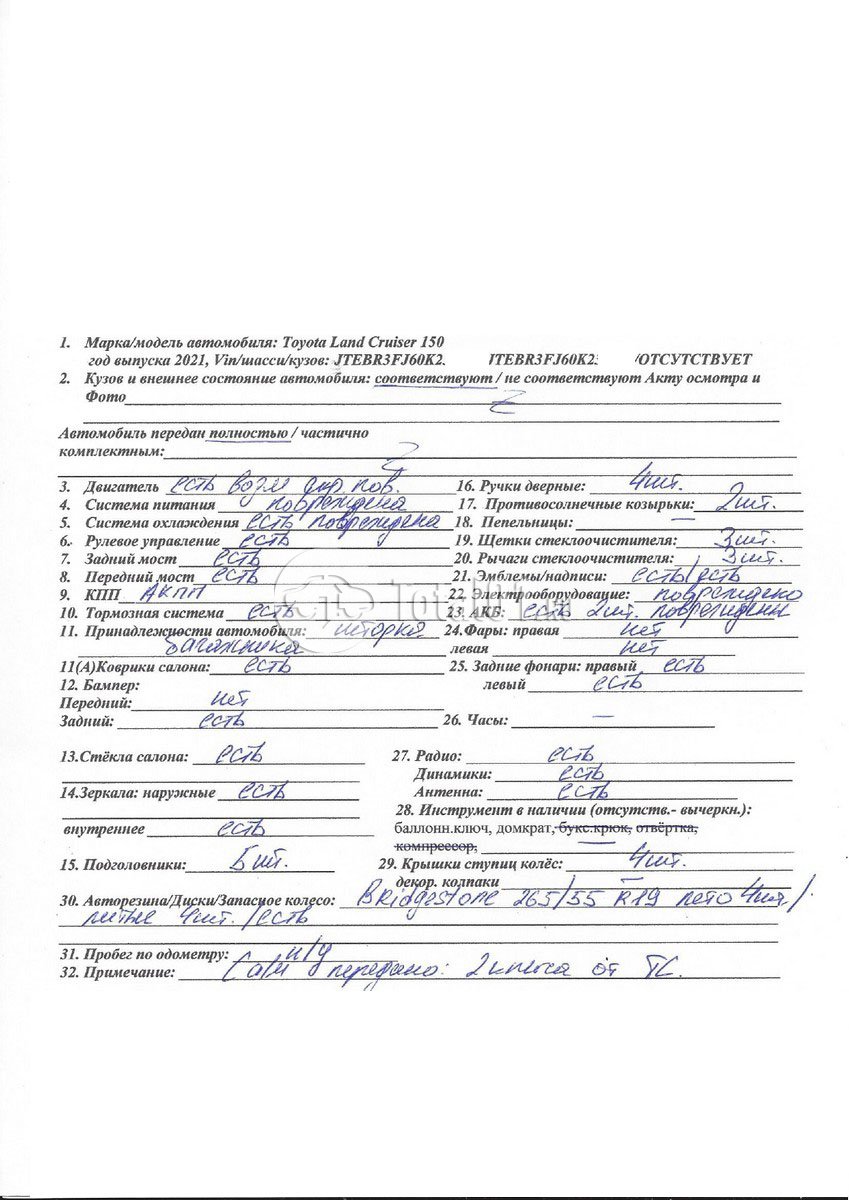 1. Марка/модель автомобиля: Toyota Land Cruiser 150
год выпуска 2021, Vin/шасси/кузов: JTEBR3FJ60K2 JTEBR3FJ60K2 /ОТСУТСТВУЕТ
2. Кузов и внешнее состояние автомобиля: соответствуют / не соответствуют Акту осмотра и
Фото
Автомобиль передан полностью / частично
комплектным:
3. Двигатель есть возм пов.
16. Ручки дверные: 4шт.
4. Система питания повреждена
17. Противосолнечные козырьки: 2шт.
5. Система охлаждения есть повреждена
18. Пепельницы: —
6. Рулевое управление есть
19. Щетки стеклоочистителя: 3шт.
7. Задний мост есть
20. Рычаги стеклоочистителя: 3шт.
8. Передний мост есть
21. Эмблемы/надписи: есть/есть
9. КПП АКПП
22. Электрооборудование: повреждено
10. Тормозная система есть
23. АКБ: есть 2шт. повреждены
11. Принадлежности автомобиля: шторка
багажника
24.Фары: правая нет
левая нет
11(А)Коврики салона: есть
25. Задние фонари: правый есть
левый есть
12. Бампер:
Передний: нет
Задний: есть
26. Часы: —
13.Стёкла салона: есть
27. Радио: есть
Динамики: есть
Антенна: есть
14.Зеркала: наружные есть
внутреннее есть
28. Инструмент в наличии (отсутств.- вычеркн.):
баллонн.ключ, домкрат, букс.крюк, отвёртка,
компрессор, —
15. Подголовники: 5шт.
29. Крышки ступиц колёс: 4шт.
декор. колпаки —
30. Авторезина/Диски/Запасное колесо: Bridgestone 265/55 R19 лето 4шт/
литые 4шт. /есть
31. Пробег по одометру: н/у
32. Примечание: передано: 2 ключа от ТС.
Total01